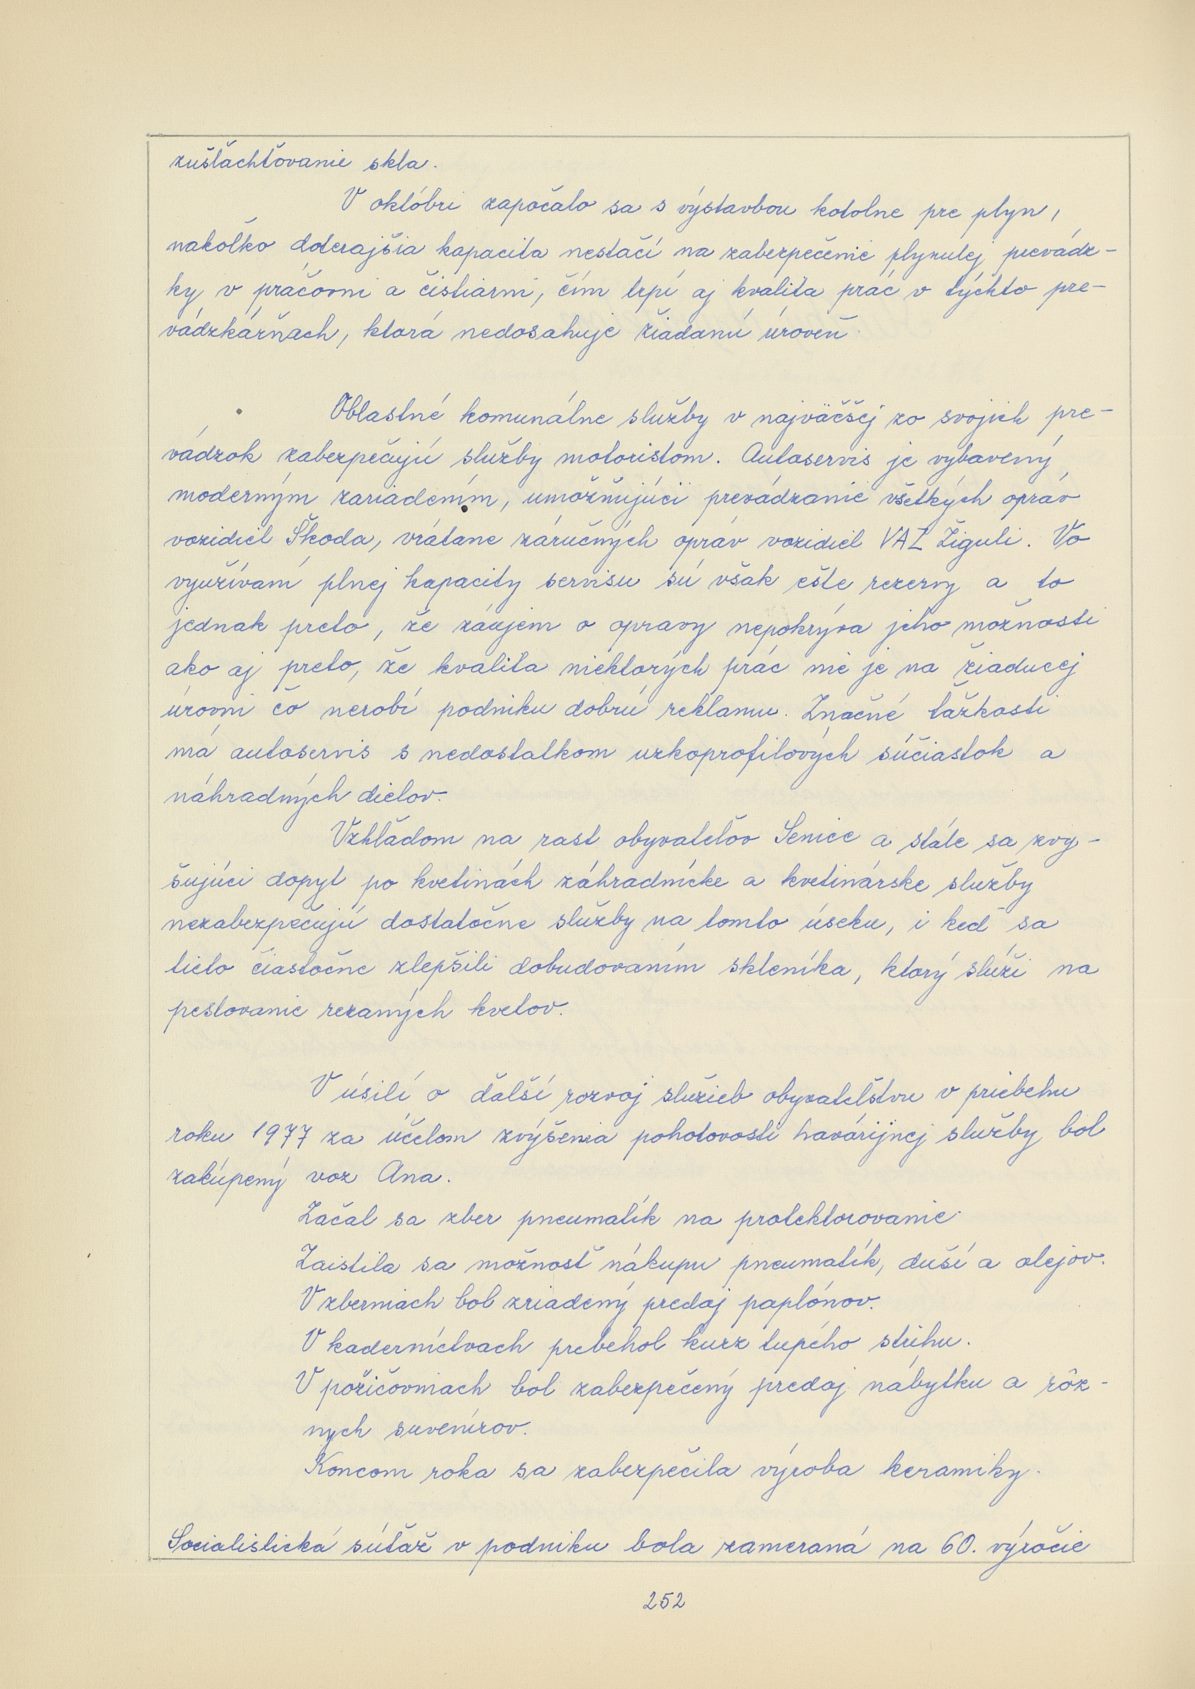 zušľachťovanie skla.
V októbri započalo sa s výstavbou kotolne pre plyn,
nakoľko doterajšia kapacita nestačí na zabezpečenie plynulej prevádz-
ky v práčovni a čistiarni, čím trpí aj kvalita prác v týchto pre-
vádzkárňach, ktorá nedosahuje žiadanú úroveň.
Oblastné komunálne služby v najväčšej zo svojich pre-
vádzok zabezpečujú služby motoristom. Autoservis je vybavený
moderným zariadením, umožňujúcii prevádzanie všetkých opráv
vozidiel Škoda, vrátane záručných opráv vozidiel VAZ Žiguli. Vo
využívaní plnej kapacity servisu sú však ešte rezervy a to
jednak preto, že záujem o opravy nepokrýva jeho možnosti
ako aj preto, že kvalita niektorých prác nie je na žiaducej
úrovni čo nerobí podniku dobrú reklamu. Značné ťažkosti
má autoservis s nedostatkom uzkoprofilových súčiastok a
náhradných dielov.
Vzhľadom na rast obyvateľov Senice a stále sa zvy-
šujúci dopyt po kvetinách záhradnícke a kvetinárske služby
nezabezpečujú dostatočne služby na tomto úseku, i keď sa
tieto čiastočne zlepšili dobudovaním skleníka, ktorý slúži na
pestovanie rezaných kvetov.
V úsilí o ďalší rozvoj služieb obyvateľstvu v priebehu
roku 1977 za účelom zvýšenia pohotovosti havárijnej služby bol
zakúpený voz Ana.
Začal sa zber pneumatík na protektorovanie.
Zaistila sa možnosť nákupu pneumatík, duší a olejov.
V zberniach bol zriadený predaj paplónov.
V kaderníctvach prebehol kurz tupého strihu.
V požičovniach bol zabezpečený predaj nábytku a rôz-
nych suvenírov.
Koncom roka sa zabezpečila výroba keramiky.
Socialistická súťaž v podniku bola zameraná na 60. výročie
252